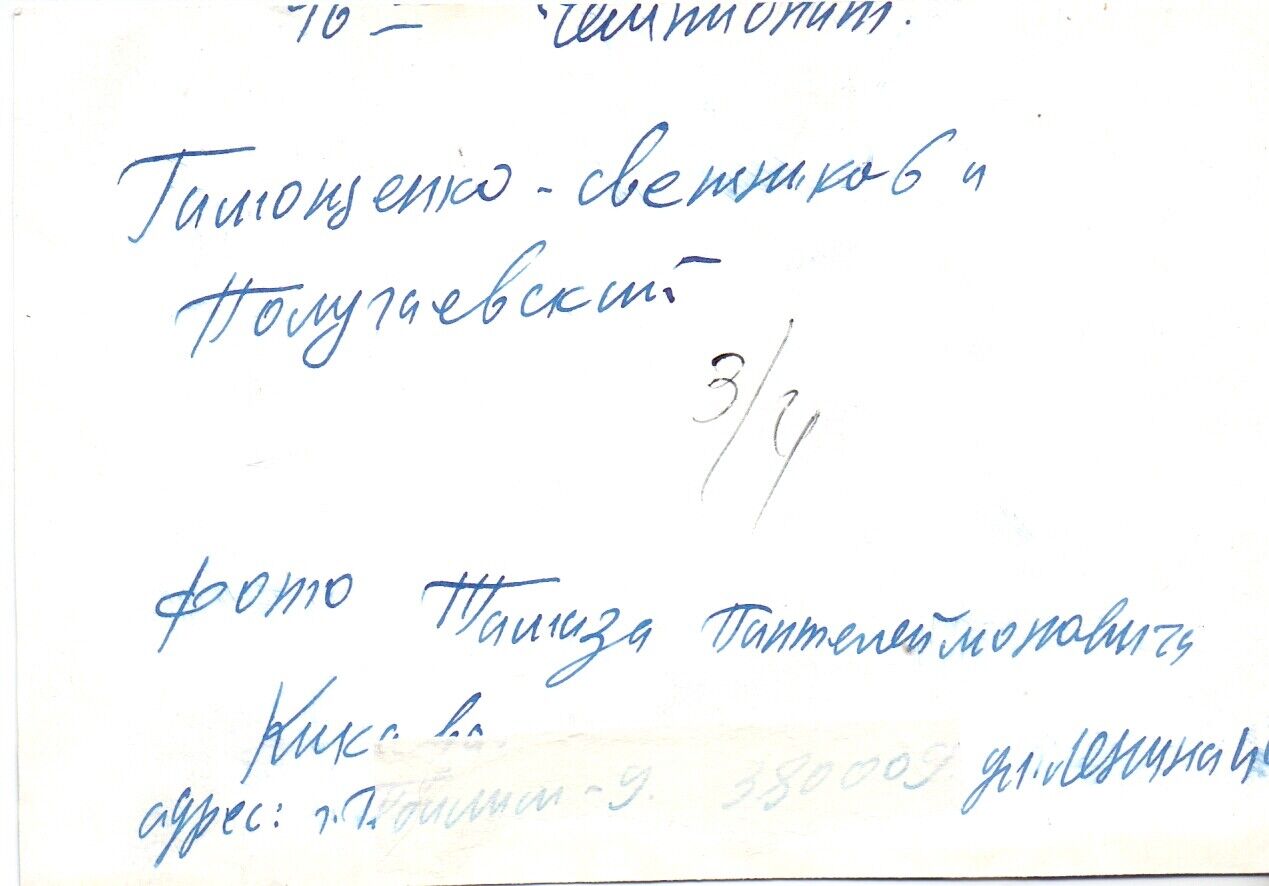 46 – Чемпионат.
Тимощенко - светников и
Полугаевский
3/4
фото Тамаза Пантелеймоновича
адрес: г. Тбилиси - 9. 380009 ул. Ленина